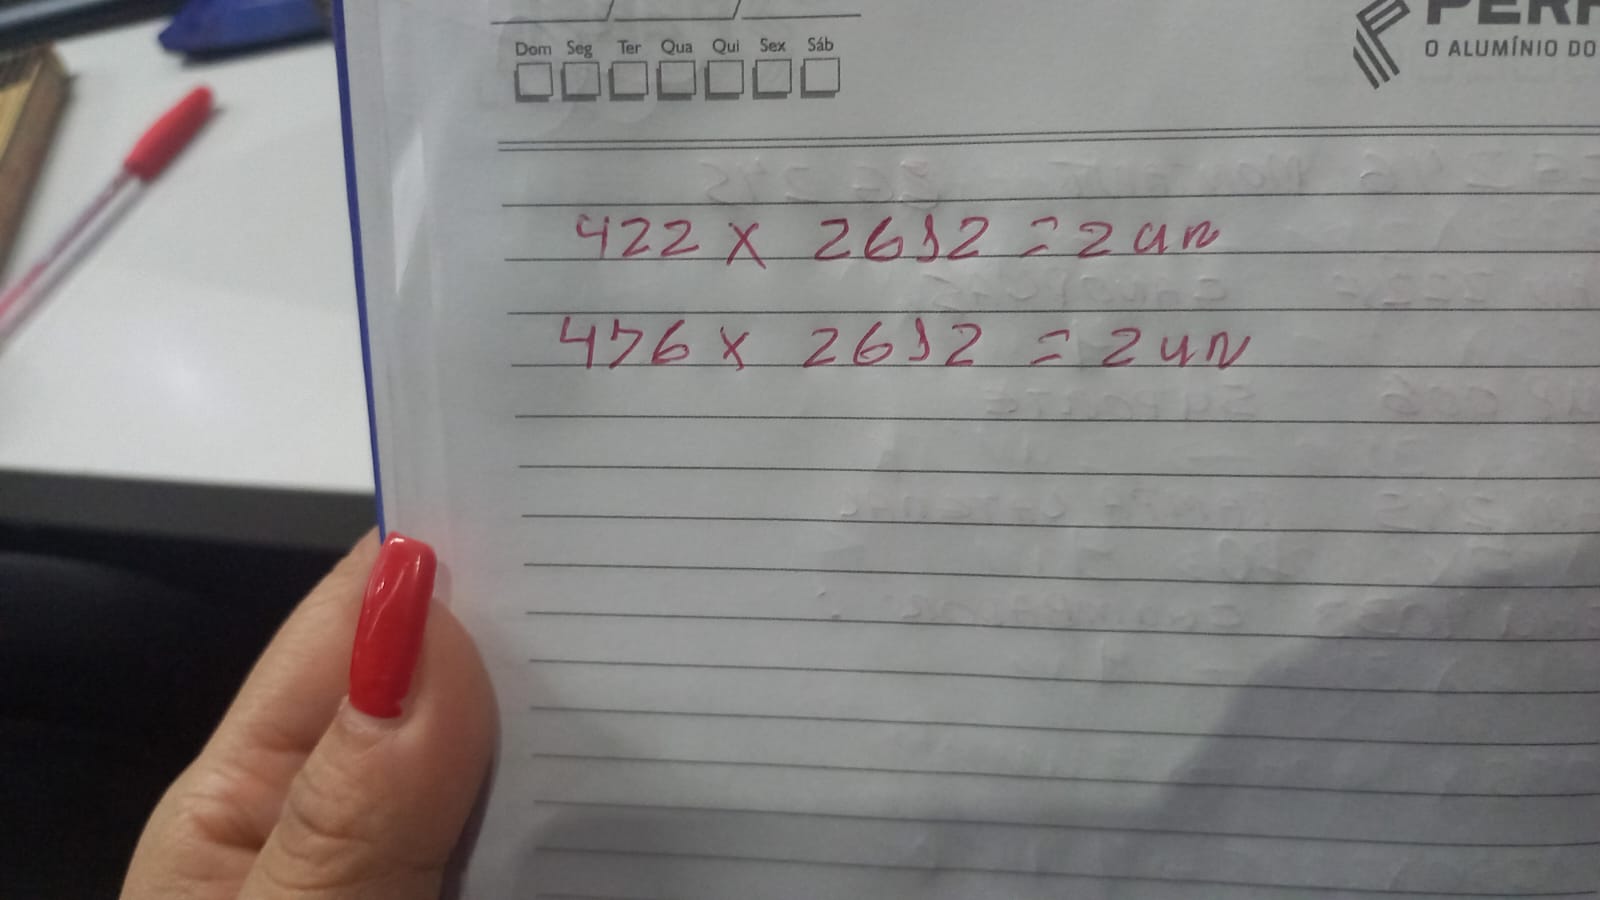 Dom Seg Ter Qua Qui Sex Sáb
O ALUMÍNIO DO
422 x 2612 = 2 un
476 x 2612 = 2 un